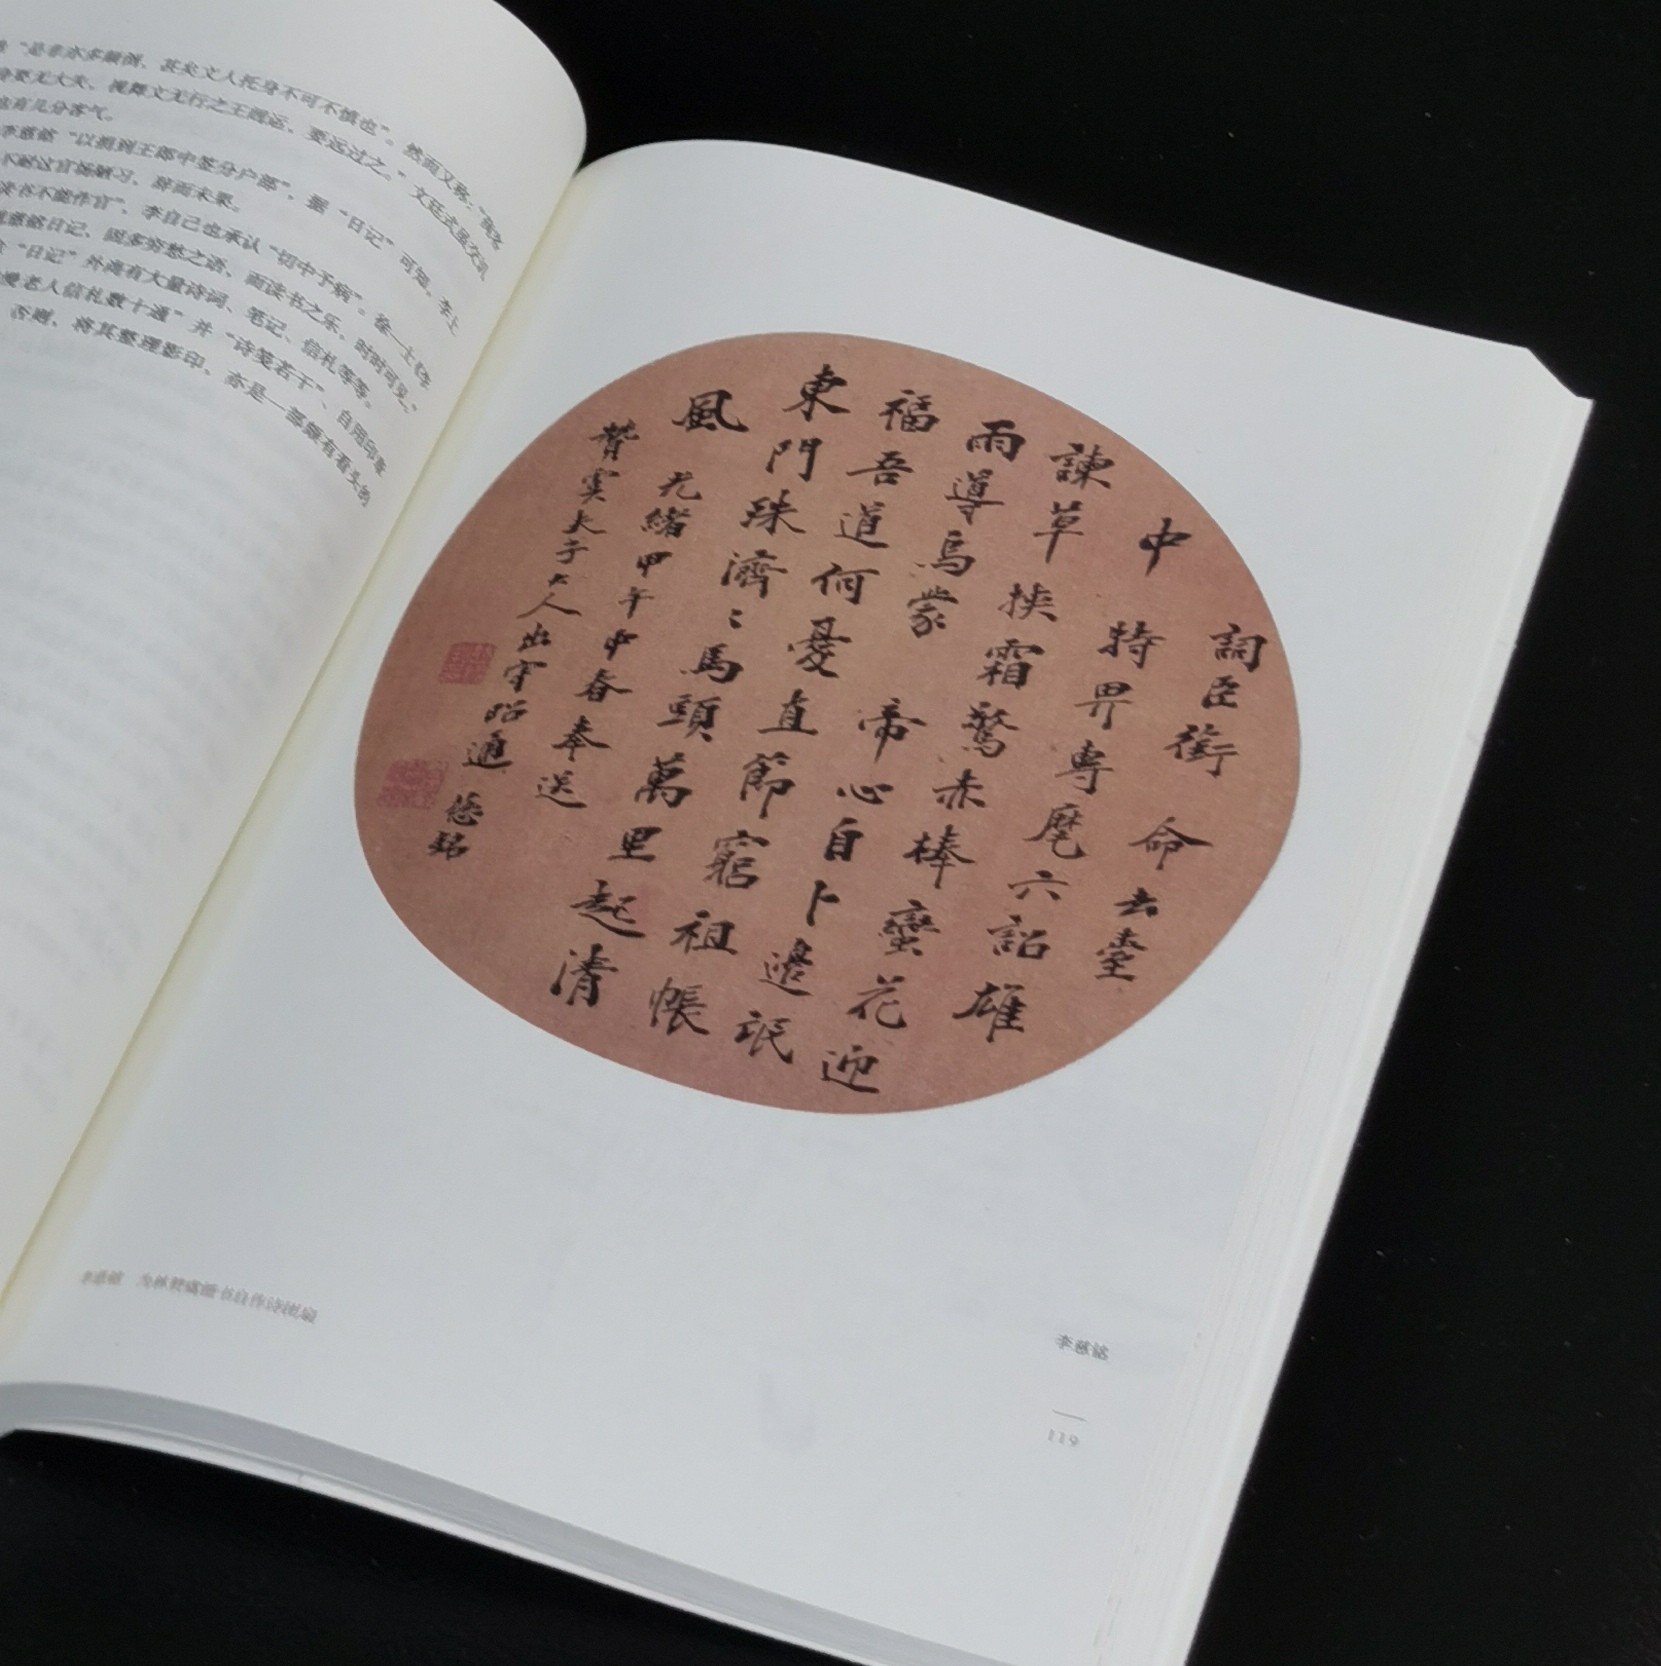 是非亦多颠倒，甚矣文人托身不可不慎也”。然而又称：“
要无大失，视舞文无行之王闿运，要远过之。”文廷式虽交
有几分客气。
李慈铭“以捐到王郎中签分户部”，据“日记”可知，李上
不耐这官场陋习，辞而未果。
读书不能作官”，李自己也承认“切中予病”。徐一士《李
慈铭日记，因多穷愁之语，而读书之乐，时时可见。”
“日记”外尚有大量诗词、笔记、信札等等。
慢老人信札数十通”并“诗笺若干”、自用印章
否则，将其整理影印，亦是一部颇有看头的
詞臣銜命去臺
中特畀專麾六詔雄
諫草挾霜驚赤棒蠻花迎
雨導烏蒙帝心自卜邊氓
福吾道何憂直節窮祖帳
東門珠濟〻馬頭萬里起清
風
光緒甲午中春奉送
贊虞大子大人出守昭通
慈銘
李慈铭 为林赞虞楷书自作诗团扇
李慈铭
119